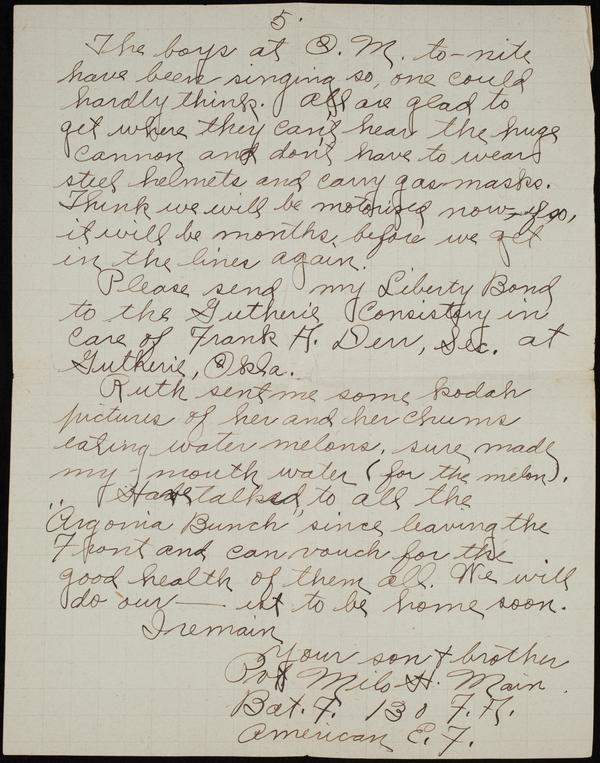 5.
The boys at Q. M. to-nite
have been singing so, one could
hardly think. All are glad to
get where they can't hear the huge
cannon and don't have to wear
steel helmets and carry gas-masks.
Think we will be motorized now, if so,
it will be months, before we get
in the lines again.
Please send my Liberty Bond
to the Gutherie Consistory in
care of Frank A. Derr, Sec. at
Gutherie, Okla.
Ruth sent me some kodak
pictures of her and her chums
eating water melons, sure made
my mouth water (for the melon).
Have talked to all the
"Argonia Bunch" since leaving the
Front and can vouch for the
good health of them all. We will
do our — est to be home soon.
I remain
Your son & brother
Pvt Milo H. Main.
Bat. F. 130 F. A.
American E. F.